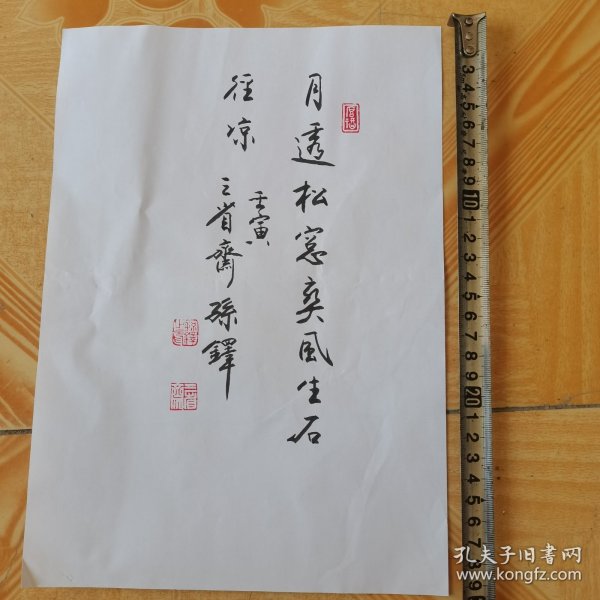 月透松窓爽風生石
径凉
壬寅
三省齋孫鐸
3 4 5 6 7 8 9 10 1 2 3 4 5 6 7 8 9 20 1 2 3 4 5 6 7 8
孔夫子旧书网
www.kongfz.com